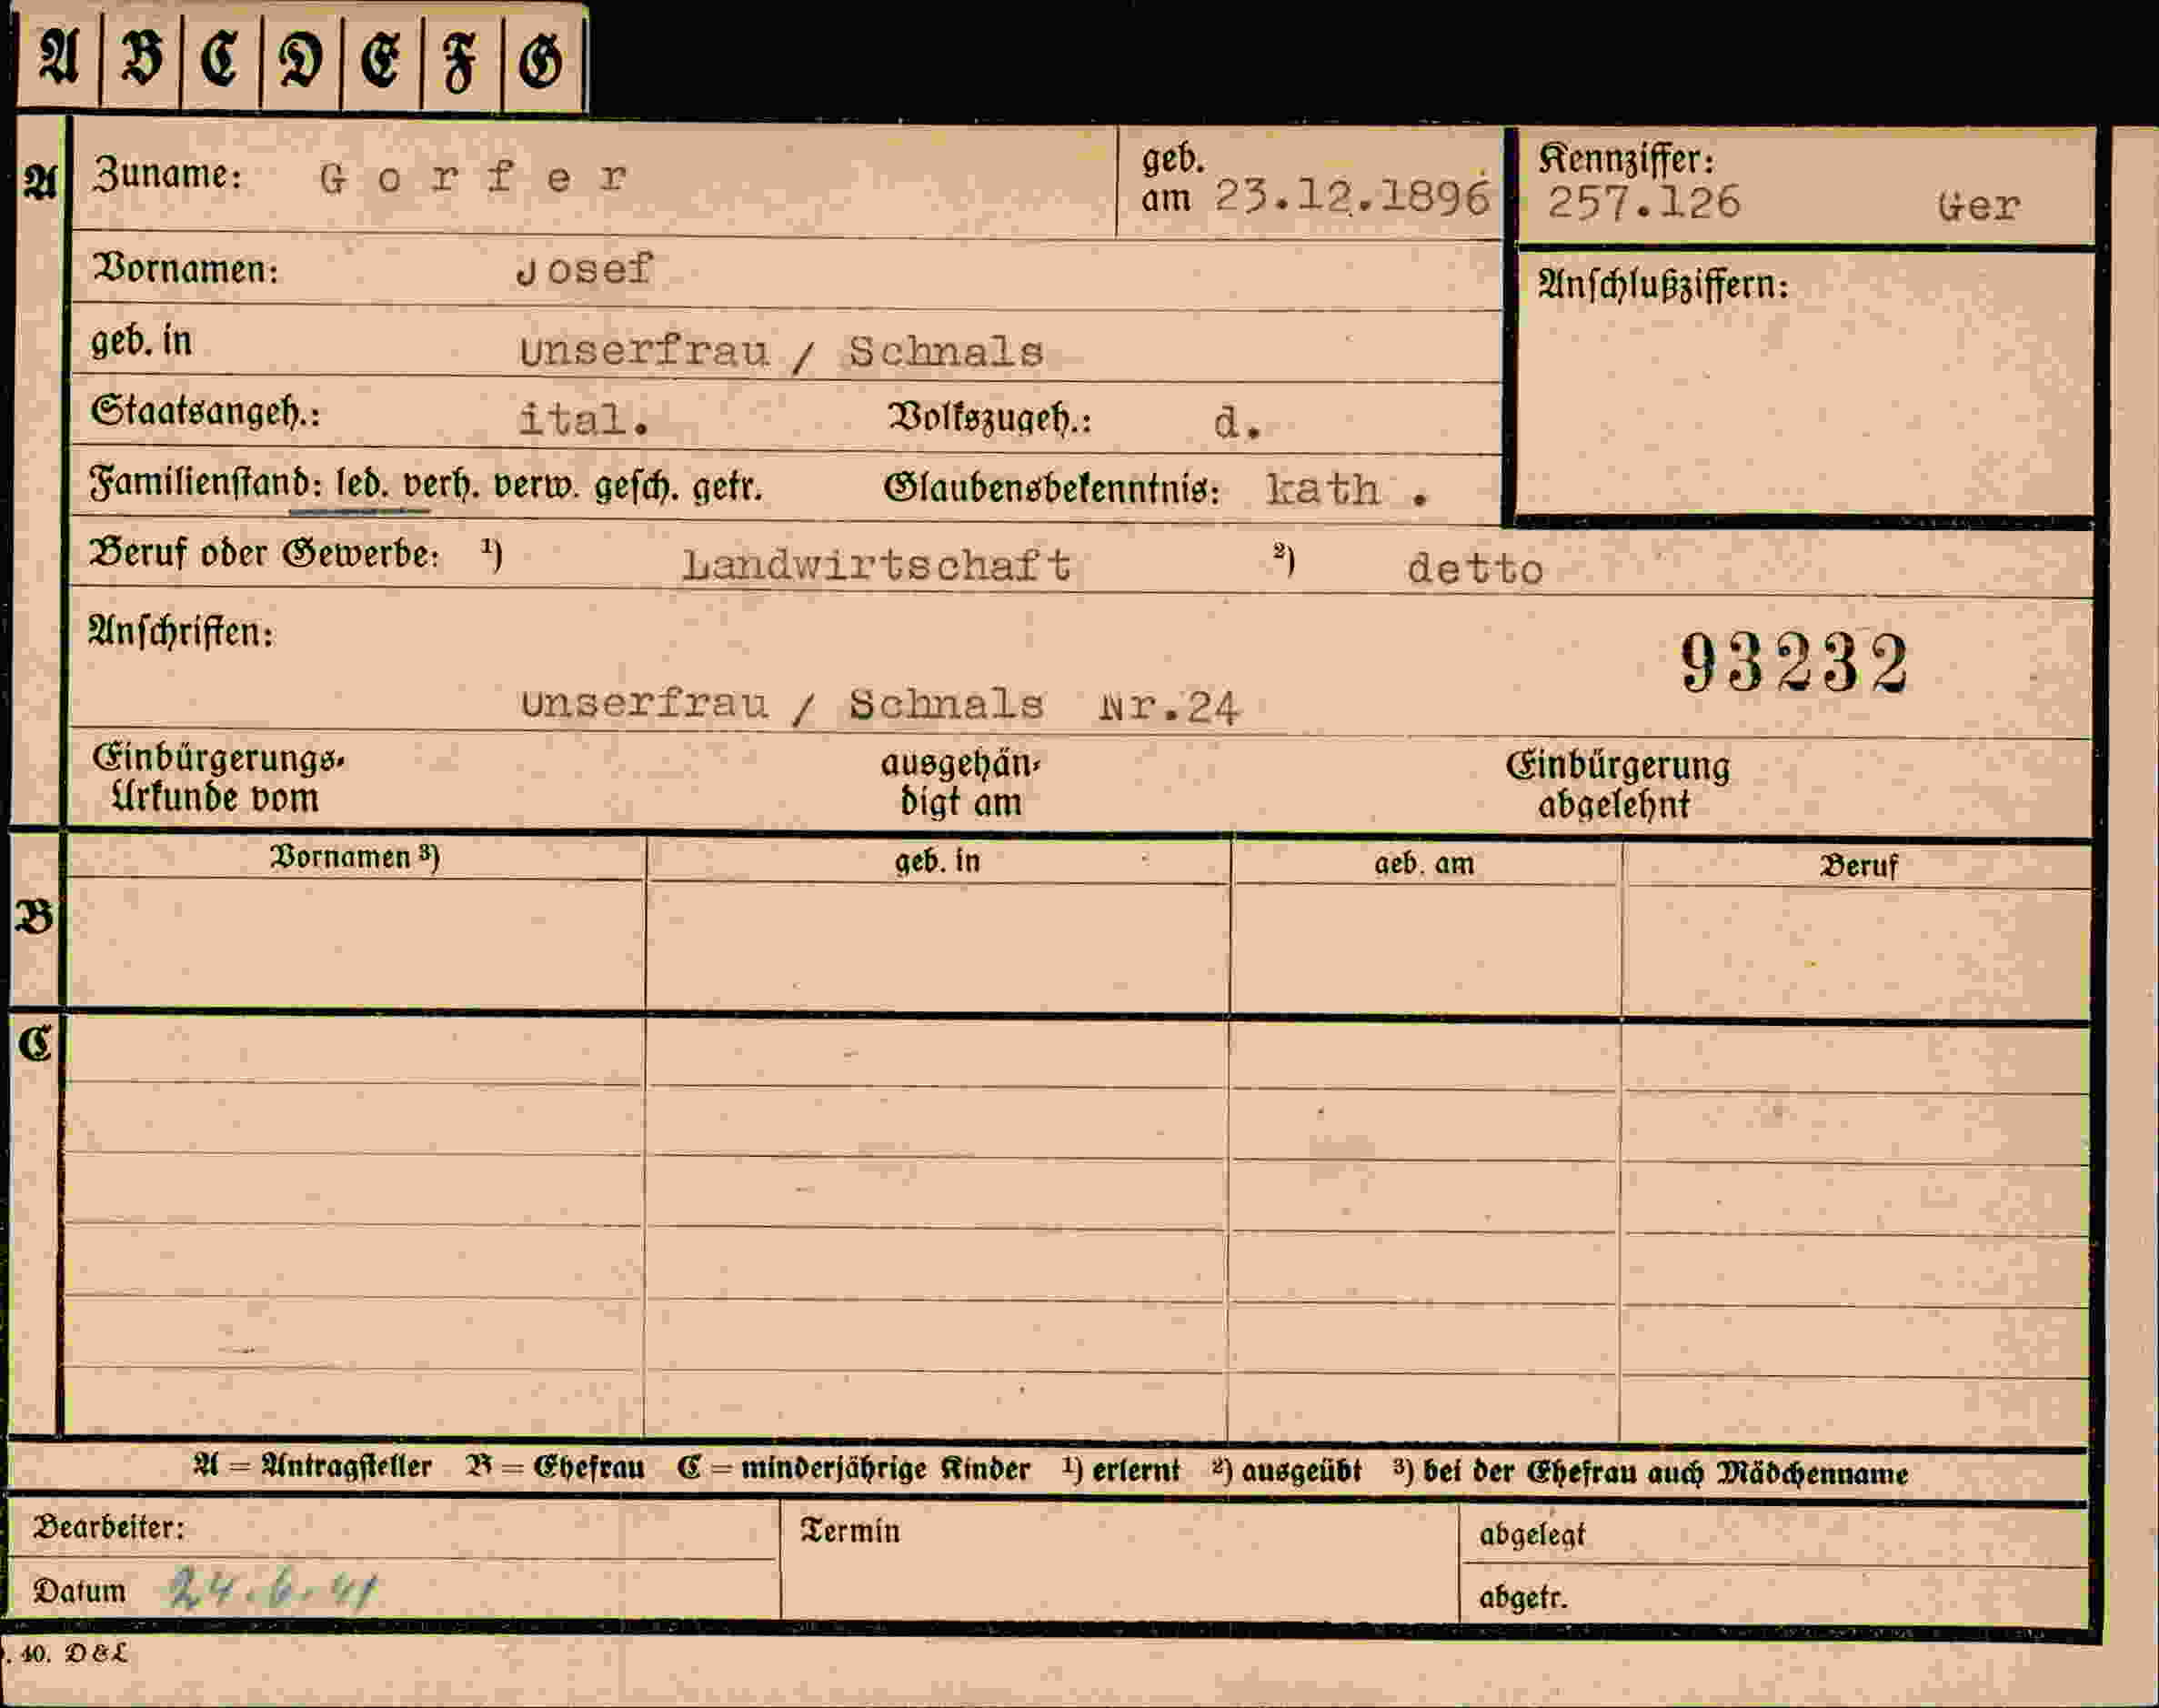 A B C D E F G
A Zuname: Gorfer geb. am 23.12.1896 Kennziffer: 257.126 Ger
Vornamen: Josef Anschlußziffern:
geb. in Unserfrau / Schnals
Staatsangeh.: ital. Volkszugeh.: d.
Familienstand: led. verh. verw. gesch. getr. Glaubensbekenntnis: kath .
Beruf oder Gewerbe: ¹) Landwirtschaft ²) detto
Anschriften: 93232
Unserfrau / Schnals Nr.24
Einbürgerungs- ausgehän- Einbürgerung
Urkunde vom digt am abgelehnt
Vornamen ³) geb. in geb. am Beruf
B
C
A = Antragsteller B = Ehefrau C = minderjährige Kinder ¹) erlernt ²) ausgeübt ³) bei der Ehefrau auch Mädchenname
Bearbeiter: Termin abgelegt
Datum 24.6.41 abgetr.
. 40. D & L